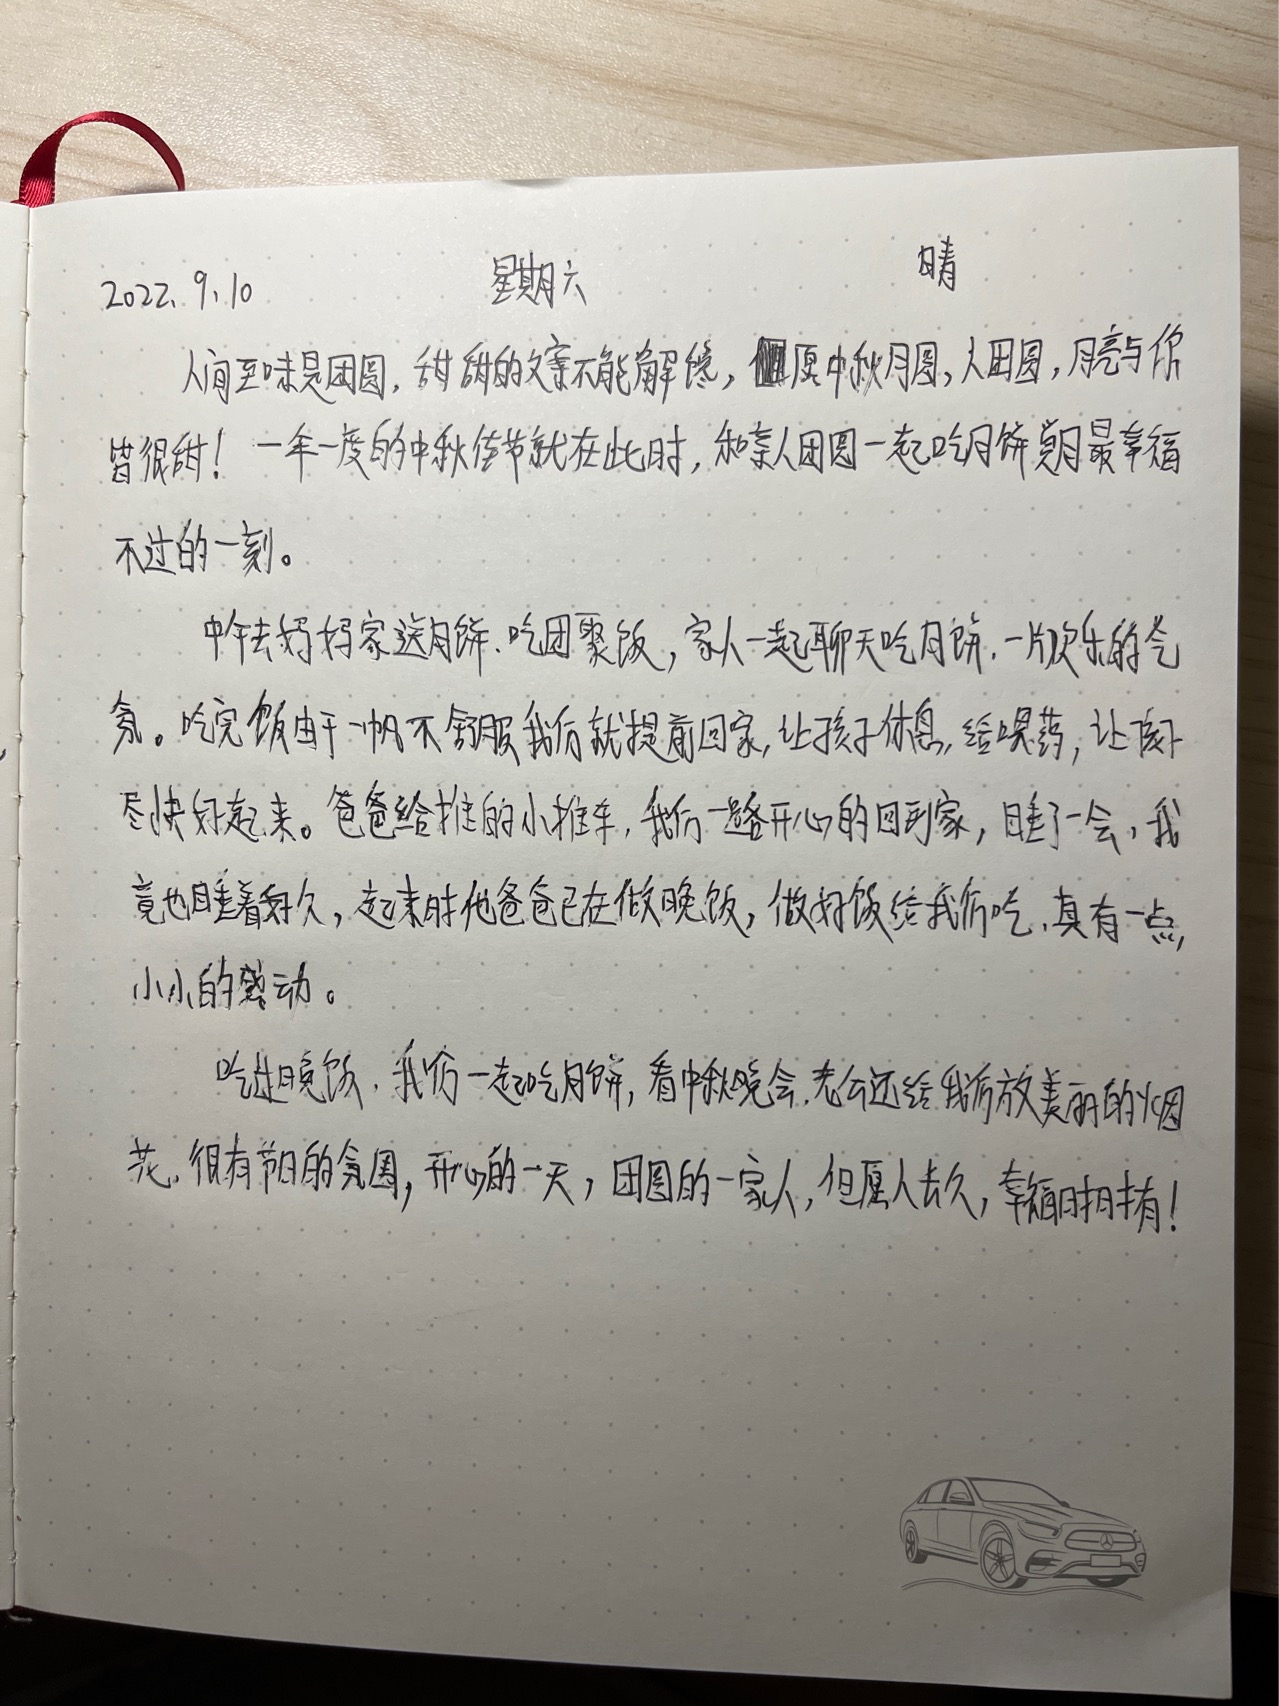 2022.9.10 星期六 晴
人间至味是团圆,甜甜的文案不能解馋,但愿中秋月圆,人团圆,月亮与你
皆很甜!一年一度的中秋佳节就在此时,和亲人团圆一起吃月饼是最幸福
不过的一刻。
中午去妈妈家送月饼、吃团聚饭,家人一起聊天吃月饼,一片欢乐的气
氛。吃完饭由于一帆不舒服我们就提前回家,让孩子休息,给喂药,让孩子
尽快好起来。爸爸给推的小推车,我们一路开心的回到家,睡了一会,我
竟也睡着好久,起来时他爸爸已在做晚饭,做好饭给我们吃,真有一点,
小小的感动。
吃过晚饭,我们一起吃月饼,看中秋晚会,老公还给我们放美丽的烟
花,很有节日的氛围,开心的一天,团圆的一家人,但愿人长久,幸福日日拥有!